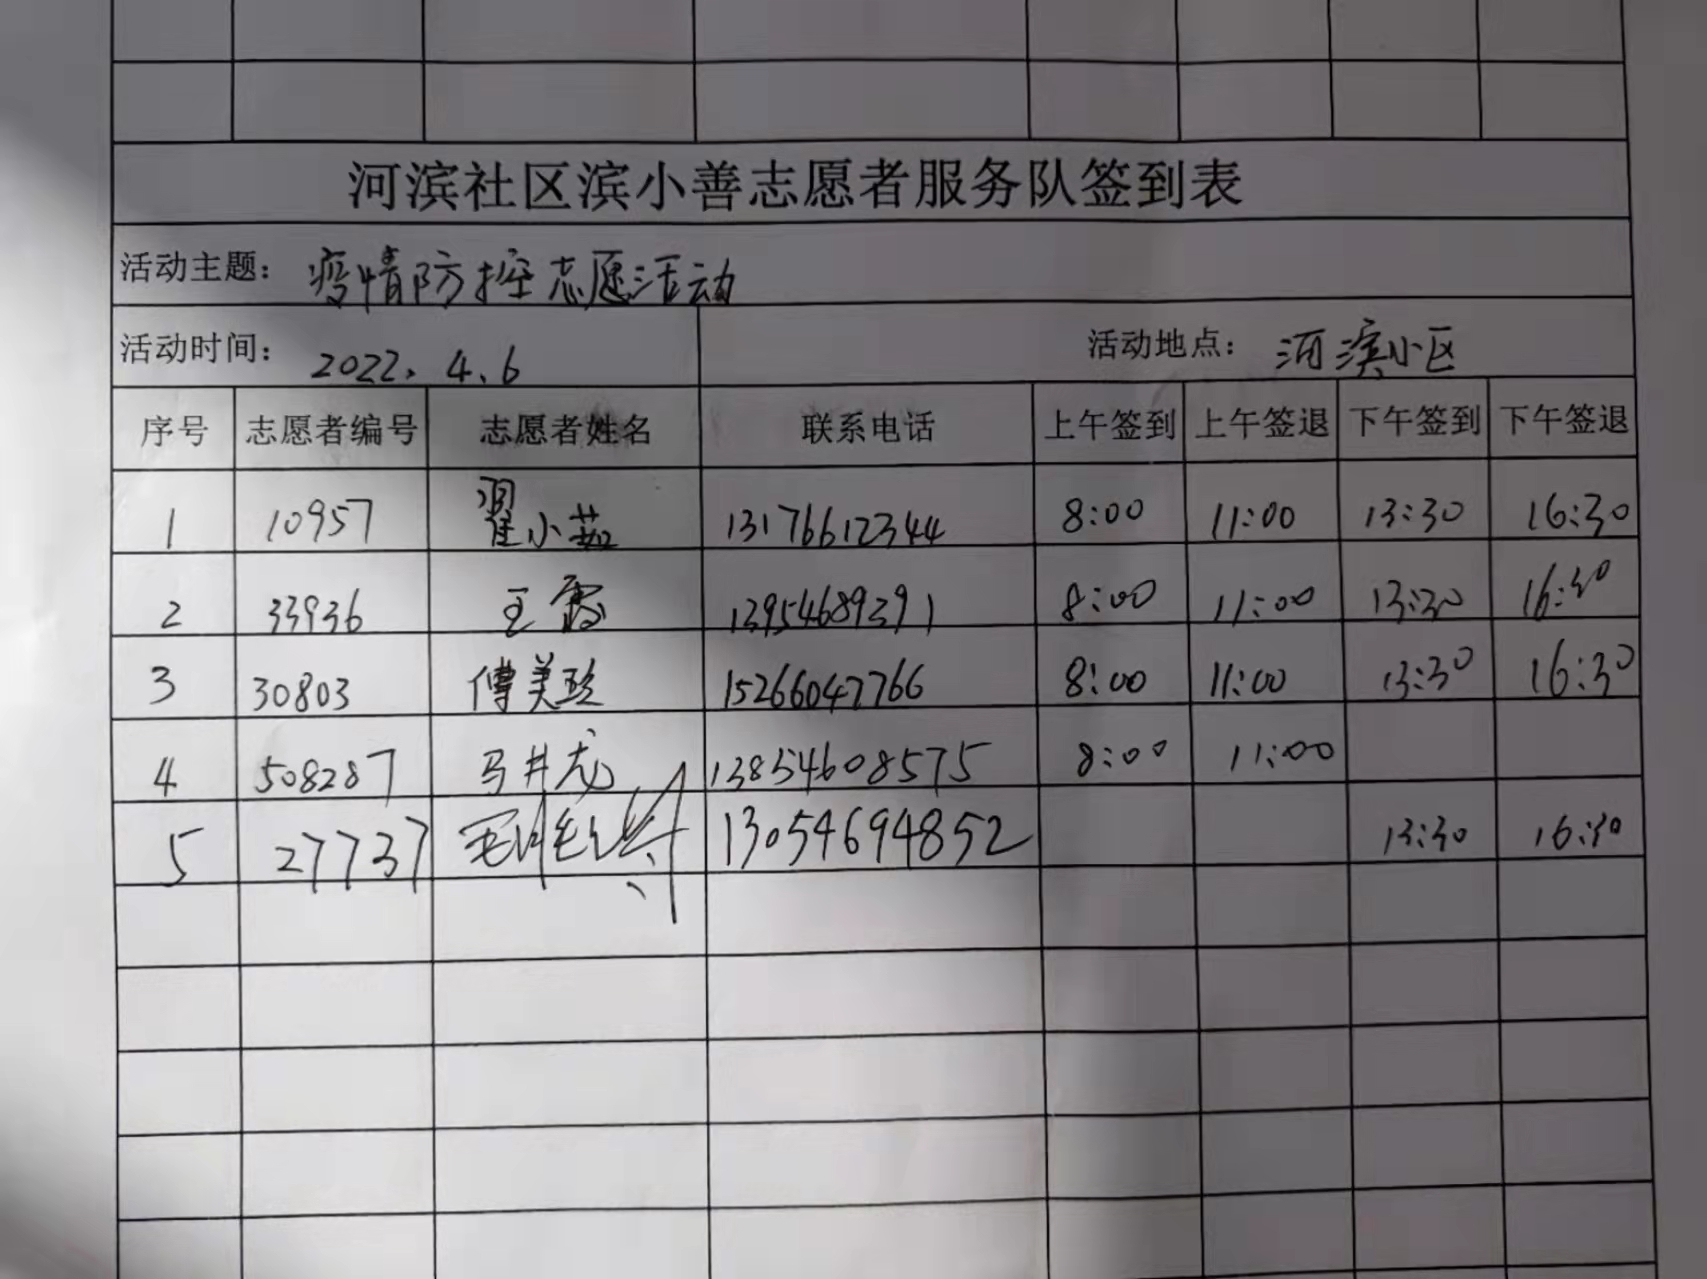 河滨社区滨小善志愿者服务队签到表
活动主题: 疫情防控志愿活动
活动时间: 2022.4.6 活动地点: 河滨小区
序号 志愿者编号 志愿者姓名 联系电话 上午签到 上午签退 下午签到 下午签退
1 10957 翟小茹 13176612344 8:00 11:00 13:30 16:30
2 33936 王霞 13954689391 8:00 11:00 13:30 16:30
3 30803 傅美珍 15266047766 8:00 11:00 13:30 16:30
4 508287 马井龙 13854608575 8:00 11:00
5 27737 13054694852 13:30 16:30